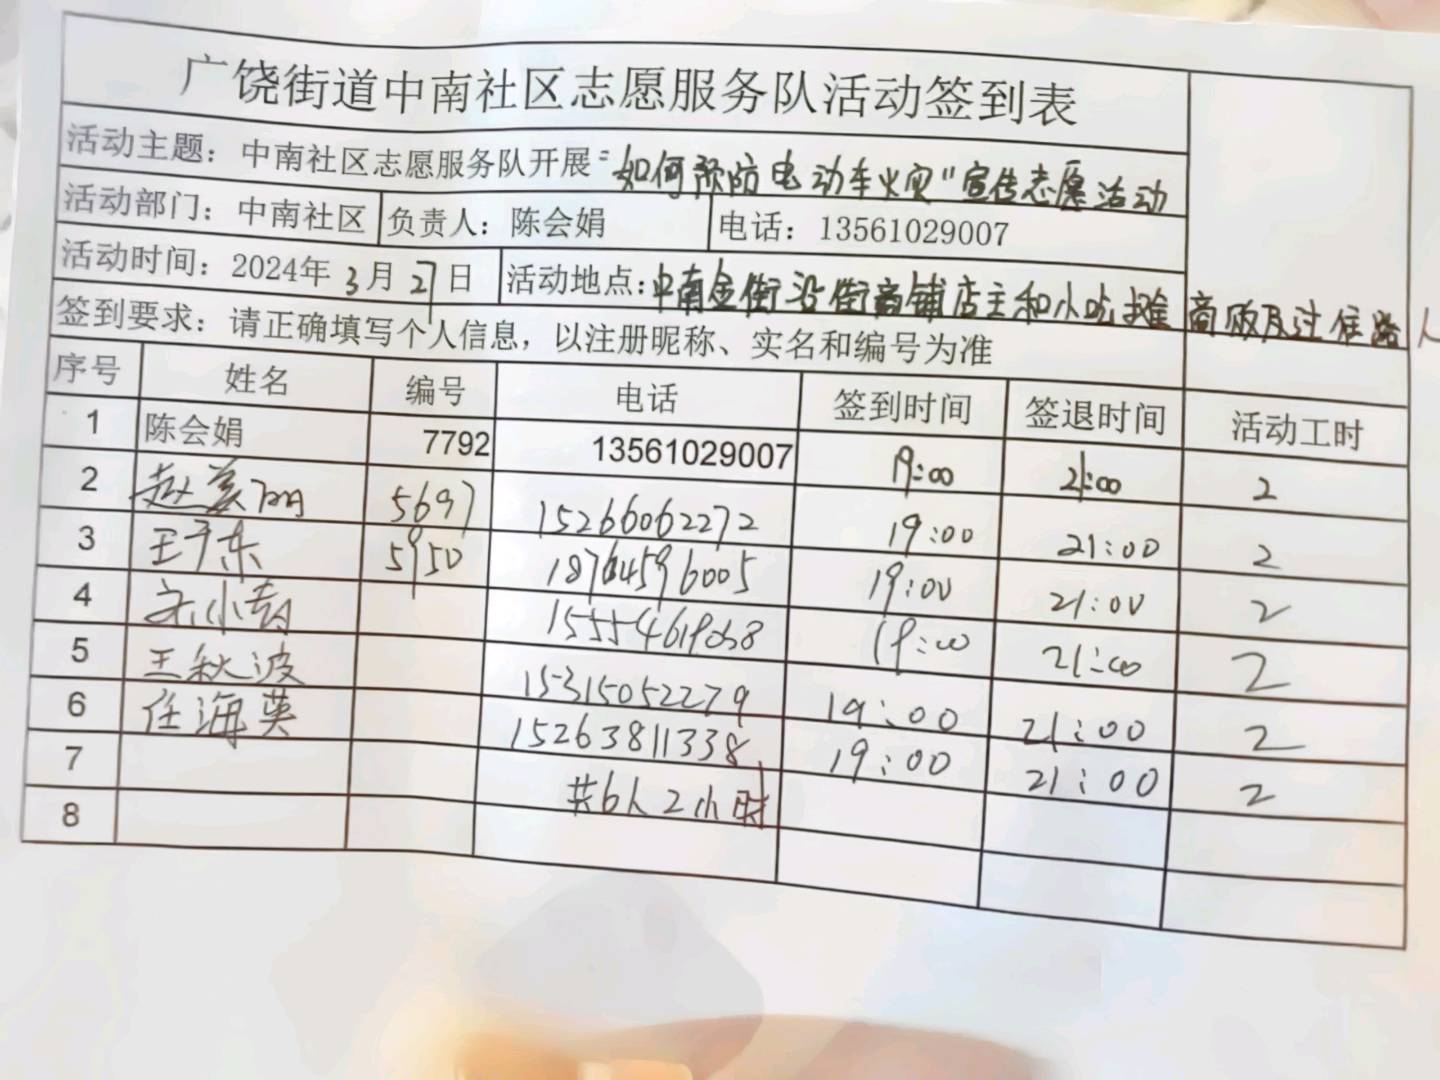 广饶街道中南社区志愿服务队活动签到表
活动主题：中南社区志愿服务队开展"如何预防电动车火灾"宣传志愿活动
活动部门：中南社区 负责人：陈会娟 电话：13561029007
活动时间：2024年3月27日 活动地点：中南金街沿街商铺店主和小吃摊商贩及过往路人
签到要求：请正确填写个人信息，以注册昵称、实名和编号为准
序号 姓名 编号 电话 签到时间 签退时间 活动工时
1 陈会娟 7792 13561029007 19:00 21:00 2
2 赵美丽 5697 15266062272 19:00 21:00 2
3 王于东 5950 18764596005 19:00 21:00 2
4 小 1555461 19:00 21:00 2
5 王秋波 15315052279 19:00 21:00 2
6 任海英 15263811338 19:00 21:00 2
7 共6人2小时
8